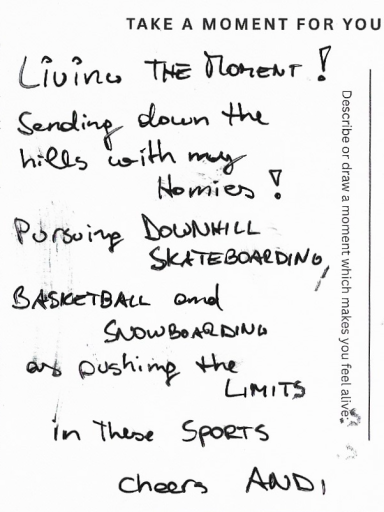 TAKE A MOMENT FOR YOU
Living THE MOMENT!
Sending down the
hills with my
Homies!
Pursuing DOWNHILL
SKATEBOARDING,
BASKETBALL and
SNOWBOARDING
as pushing the
LIMITS
in these SPORTS
Cheers ANDI
Describe or draw a moment which makes you feel alive.